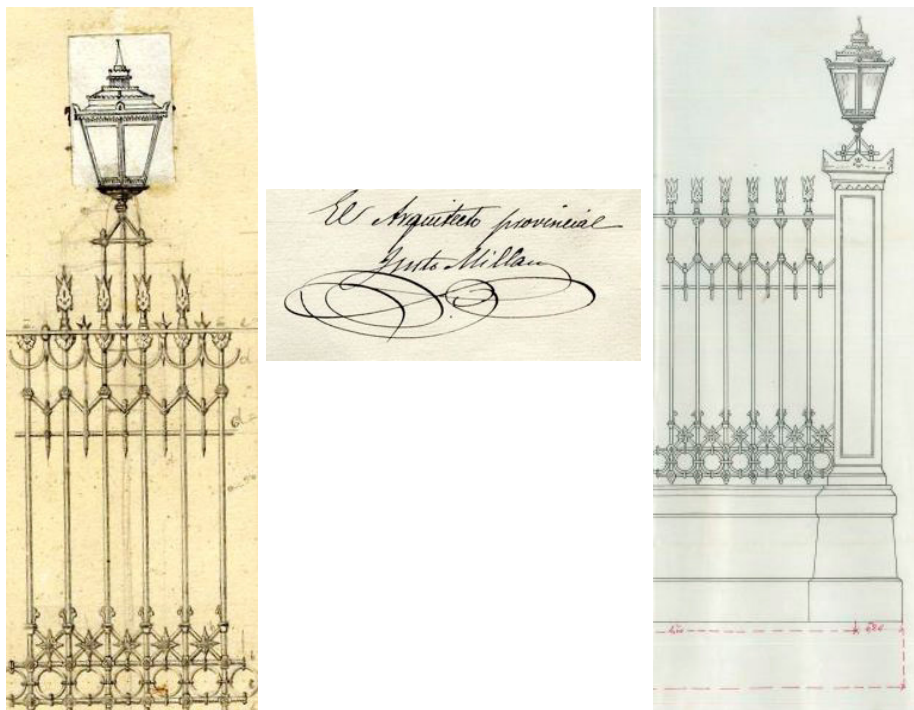 El Arquitecto provincial
Justo Millan